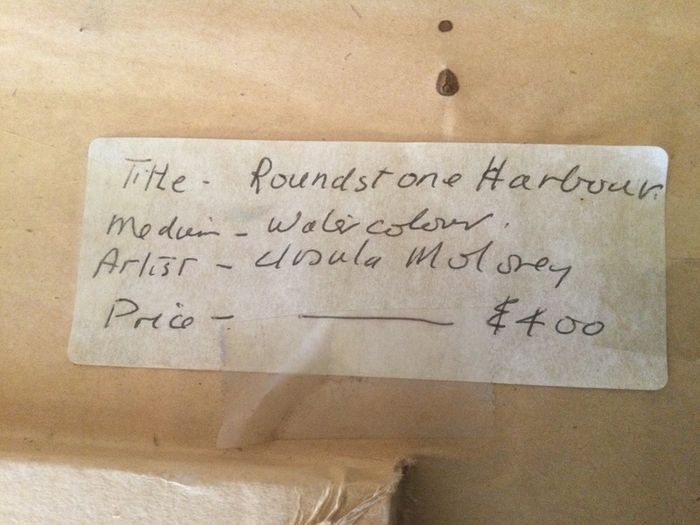 Title - Roundstone Harbour.
Medium - Watercolour.
Artist - Ursula Molorey
Price - — £400